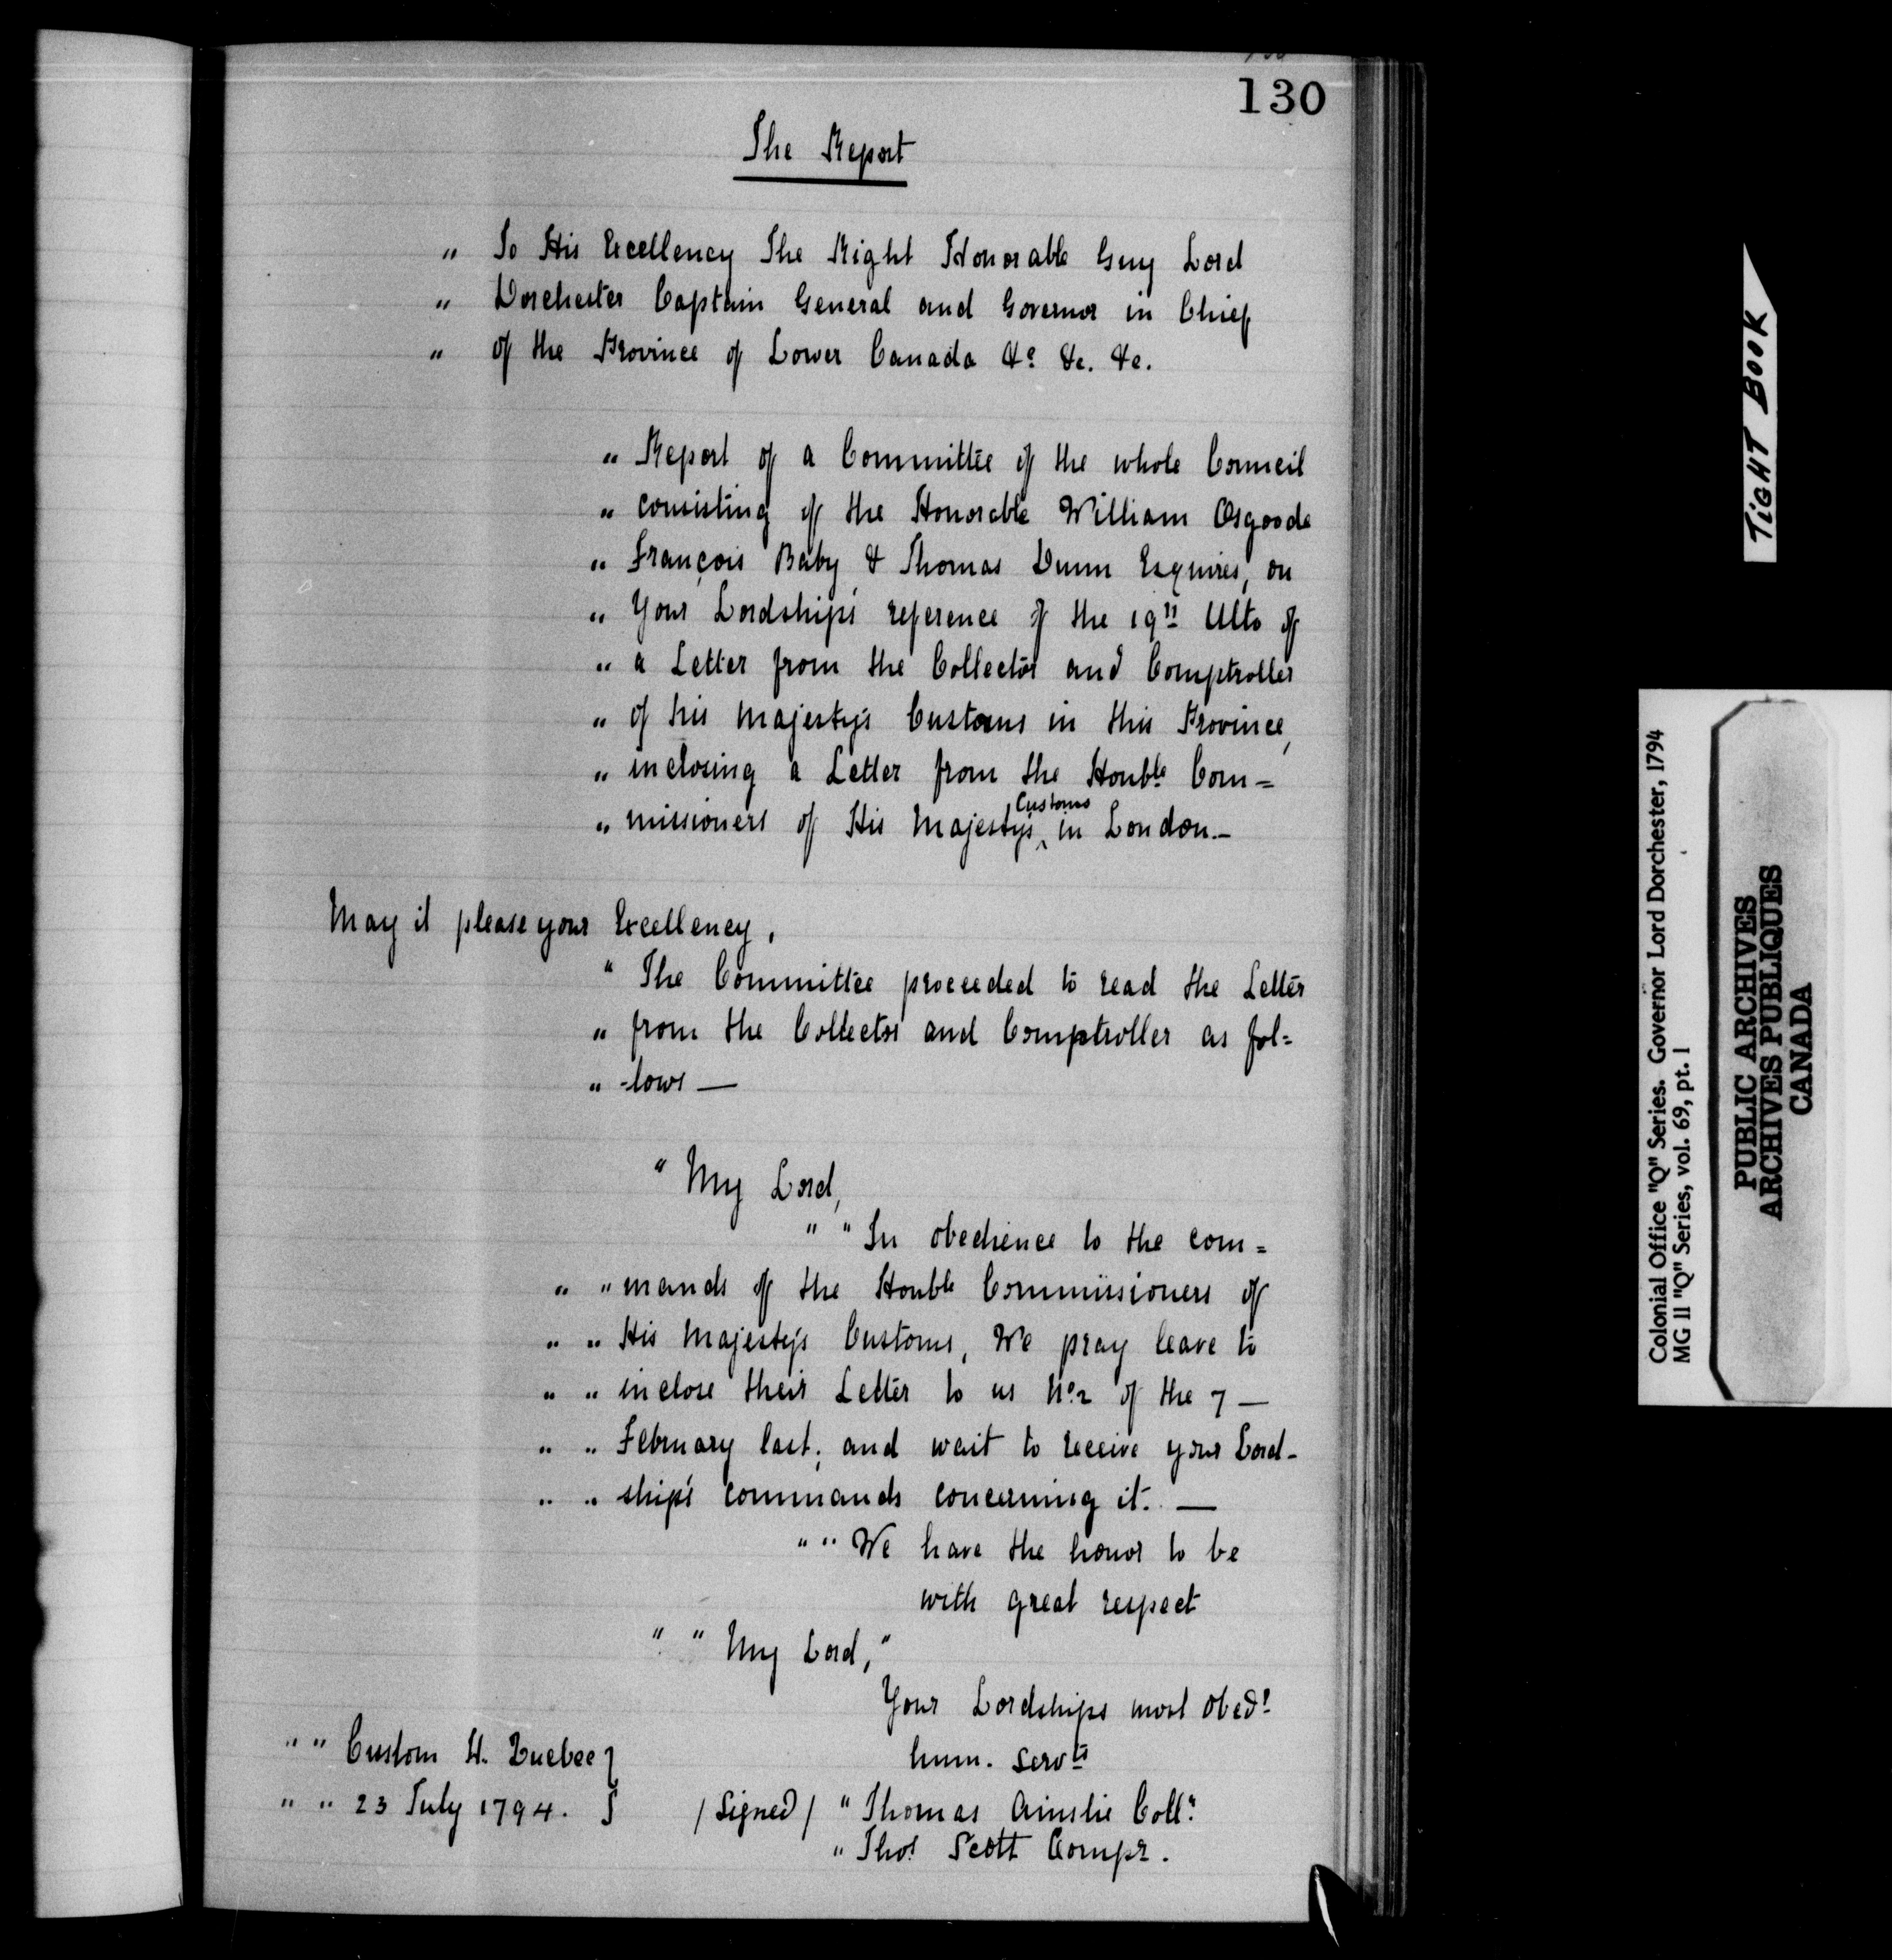 130
The Report
" To His Excellency The Right Honorable Guy Lord
" Dorchester Captain General and Governor in Chief
" of the Province of Lower Canada &c. &c. &c.
" Report of a Committee of the whole Council
" consisting of the Honorable William Osgoode
" François Baby & Thomas Dunn Esquires, on
" Your Lordship's reference of the 19th Ulto of
" a Letter from the Collector and Comptroller
" of his Majesty's Customs in this Province,
" inclosing a Letter from the Honble Com=
" missioners of His Majesty's ^Customs in London.—
May it please your Excellency,
" The Committee proceeded to read the Letter
" from the Collector and Comptroller as fol=
" -lows —
" My Lord,
" " In obedience to the com=
" " mands of the Honble Commissioners of
" " His Majesty's Customs, We pray leave to
" " inclose their Letter to us No. 2 of the 7 —
" " February last; and wait to receive your Lord-
" " ship's commands concerning it. —
" " We have the honor to be
with great respect
" " My Lord, "
Your Lordships most obedt
hum. servts
" " Custom H. Quebec }
" " 23 July 1794. }
/signed/ " Thomas Ainslie Collr.
" Thos Scott Compr.
TIGHT BOOK
Colonial Office "Q" Series. Governor Lord Dorchester, 1794
MG 11 "Q" Series, vol. 69, pt. 1
PUBLIC ARCHIVES
ARCHIVES PUBLIQUES
CANADA